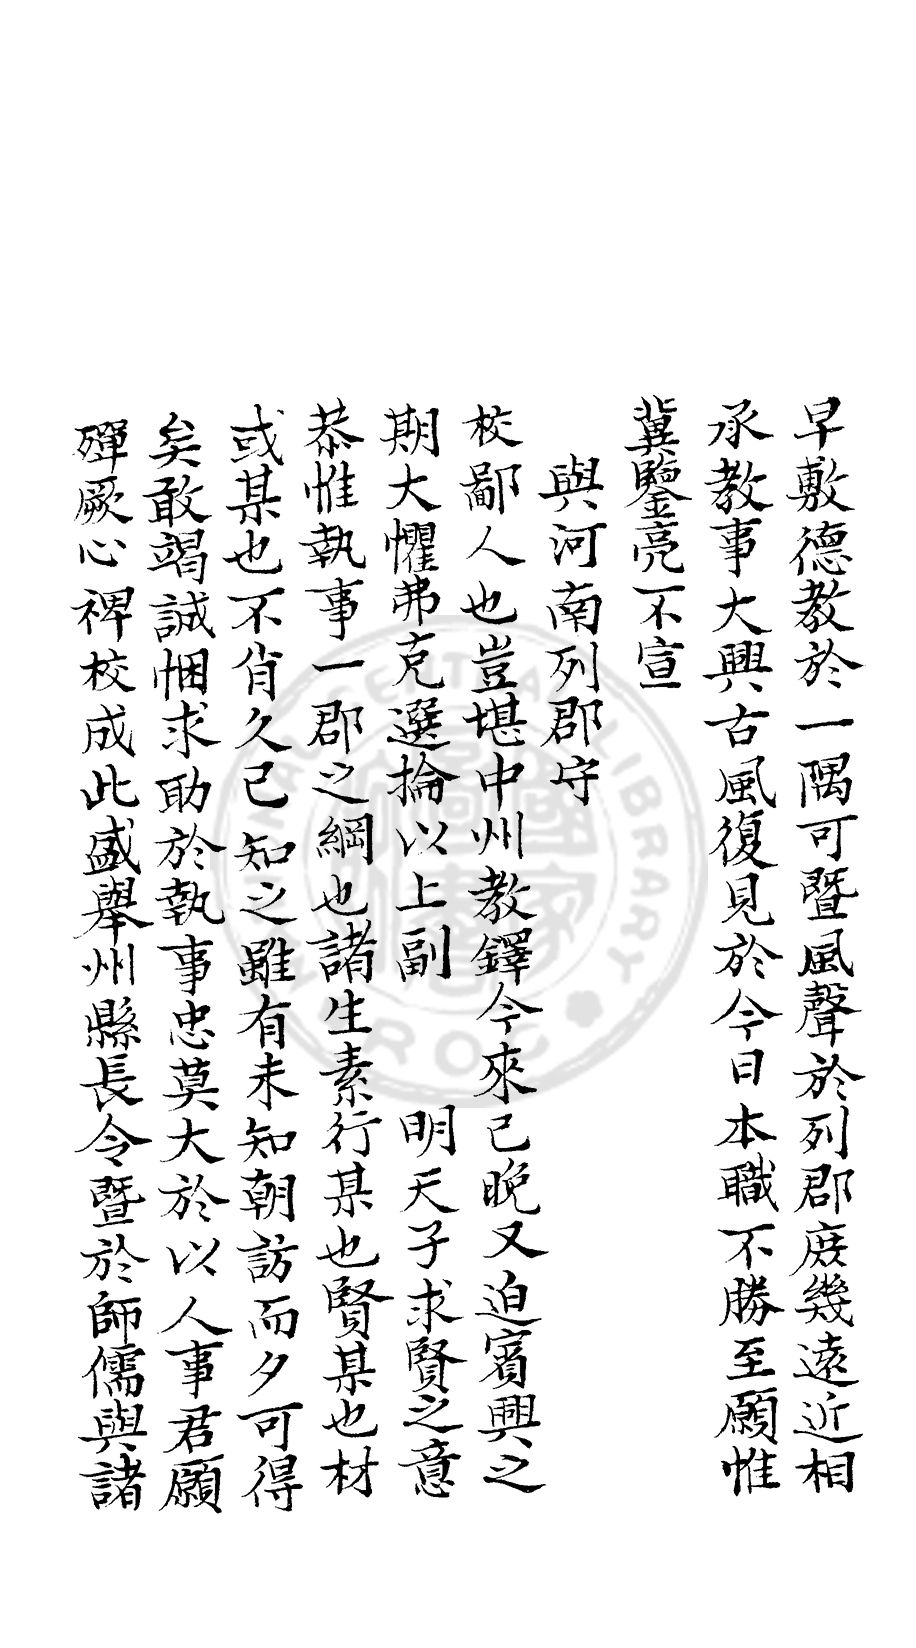 早敷德教於一隅可暨風聲於列郡庻幾遠近相
承教事大興古風復見於今日本職不勝至願惟
冀鑒亮不宣
與河南列郡守
校鄙人也豈堪中州教鐸今來已晚又迫賓興之
期大懼弗克選掄以上副 明天子求賢之意
恭惟執事一郡之綱也諸生素行某也賢某也材
或某也不肖久已知之雖有未知朝訪而夕可得
矣敢竭誠悃求助於執事忠莫大於以人事君願
殫厥心裨校成此盛舉州縣長令暨於師儒與諸
NATIONAL CENTRAL LIBRARY R.O.C.